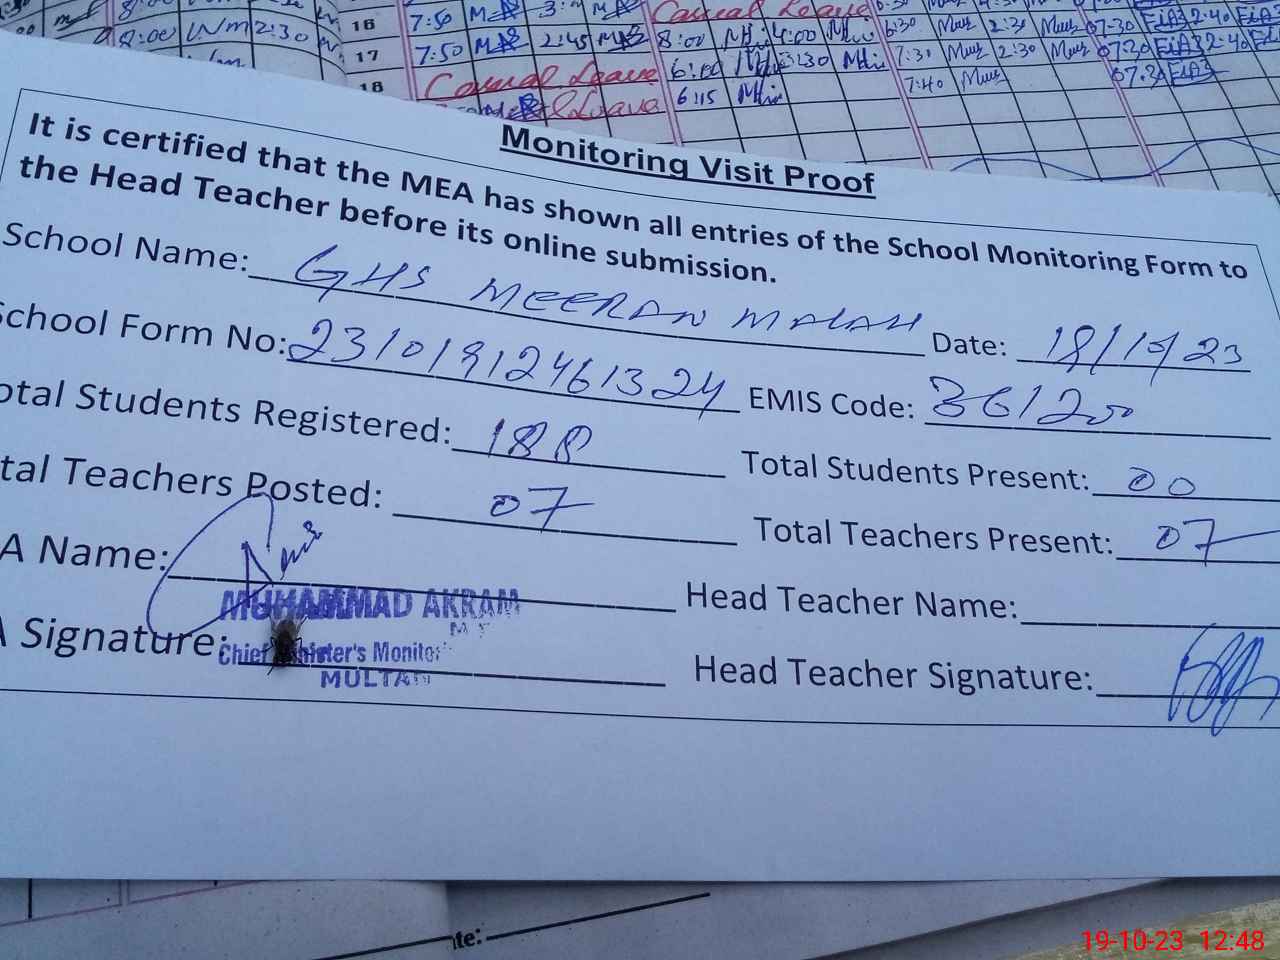 16 7:50
8:00 Wm 2:30 17 7:50 2:45 8:00 4:00 6:30 2:30 07-30 2:40
18 Casual Leave 6:00 3:30 7:30 2:30 07.30 2:40
Leave 6:15 7:40 07.30
Casual Leave
Monitoring Visit Proof
It is certified that the MEA has shown all entries of the School Monitoring Form to
the Head Teacher before its online submission.
School Name: GHS MEERAN MALAH Date: 18/10/23
School Form No: 23101912461324 EMIS Code: 361200
otal Students Registered: 188 Total Students Present: 00
tal Teachers Posted: 07 Total Teachers Present: 07
A Name: Head Teacher Name:
MUHAMMAD AKRAM
A Signature: Head Teacher Signature:
Chief Minister's Monitor
MULTAN
te:
19-10-23 12:48